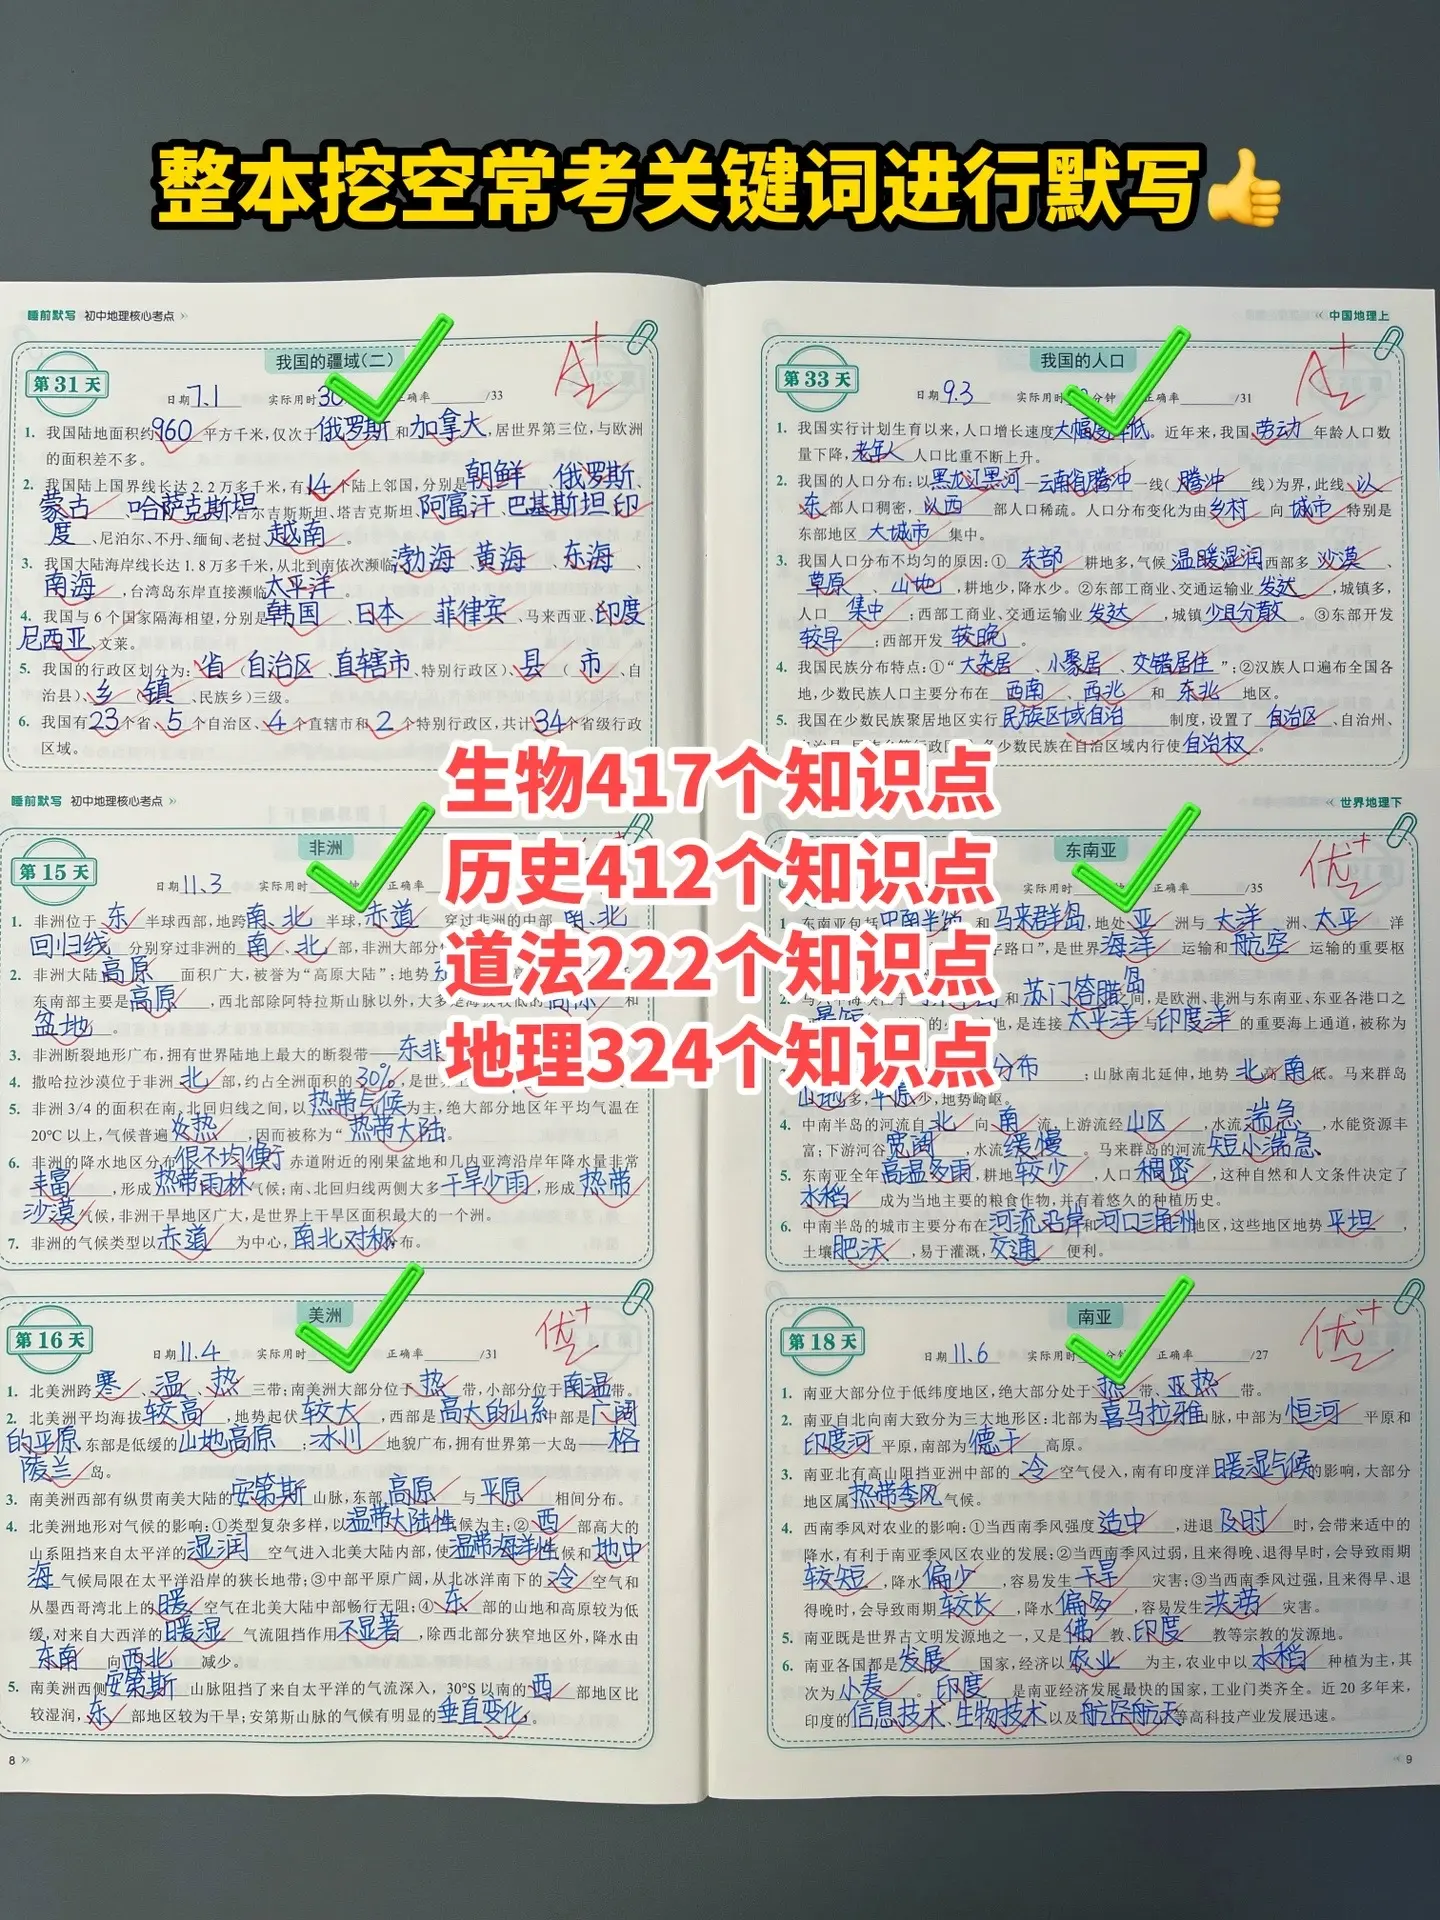 整本挖空常考关键词进行默写👍
睡前默写 初中地理核心考点
我国的疆域(二)
第31天
A+
日期 7.1 实际用时30 正确率 /33
1. 我国陆地面积约960平方千米,仅次于俄罗斯和加拿大,居世界第三位,与欧洲
的面积差不多。
2. 我国陆上国界线长达2.2万多千米,有14个陆上邻国,分别是朝鲜、俄罗斯、
蒙古、哈萨克斯坦、吉尔吉斯斯坦、塔吉克斯坦、阿富汗、巴基斯坦、印
度、尼泊尔、不丹、缅甸、老挝、越南。
3. 我国大陆海岸线长达1.8万多千米,从北到南依次濒临渤海、黄海、东海、
南海,台湾岛东岸直接濒临太平洋。
4. 我国与6个国家隔海相望,分别是韩国、日本、菲律宾、马来西亚、印度
尼西亚、文莱。
5. 我国的行政区划分为:省(自治区、直辖市、特别行政区)、县(市、自
治县)、乡(镇、民族乡)三级。
6. 我国有23个省、5个自治区、4个直辖市和2个特别行政区,共计34个省级行政
区域。
中国地理上
我国的人口
第33天
A+
日期 9.3 实际用时 分钟 正确率 /31
1. 我国实行计划生育以来,人口增长速度大幅度降低。近年来,我国劳动年龄人口数
量下降,老年人人口比重不断上升。
2. 我国的人口分布:以黑龙江黑河—云南省腾冲一线(腾冲线)为界,此线以
东部人口稠密,以西部人口稀疏。人口分布变化为由乡村向城市特别是
东部地区大城市集中。
3. 我国人口分布不均匀的原因:①东部耕地多,气候温暖湿润西部多沙漠、
草原、山地,耕地少,降水少。②东部工商业、交通运输业发达,城镇多,
人口集中;西部工商业、交通运输业发达,城镇少且分散。③东部开发
较早;西部开发较晚。
4. 我国民族分布特点:①“大杂居、小聚居、交错居住”;②汉族人口遍布全国各
地,少数民族人口主要分布在西南、西北和东北地区。
5. 我国在少数民族聚居地区实行民族区域自治制度,设置了自治区、自治州、
少数民族在自治区域内行使自治权。
生物417个知识点
历史412个知识点
道法222个知识点
地理324个知识点
睡前默写 初中地理核心考点
非洲
第15天
日期 11.3 实际用时 正确率
1. 非洲位于东半球西部,地跨南、北半球,赤道穿过非洲的中部,南、北
回归线分别穿过非洲的南、北部,非洲大部分
2. 非洲大陆高原面积广大,被誉为“高原大陆”;地势
东南部主要是高原,西北部除阿特拉斯山脉以外,大多是海拔较低的高原和
盆地。
3. 非洲断裂地形广布,拥有世界陆地上最大的断裂带—东非
4. 撒哈拉沙漠位于非洲北部,约占全洲面积的30%,是世
5. 非洲3/4的面积在南、北回归线之间,以热带气候为主,绝大部分地区年平均气温在
20℃以上,气候普遍炎热,因而被称为“热带大陆。
6. 非洲的降水地区分布很不均衡,赤道附近的刚果盆地和几内亚湾沿岸年降水量非常
丰富,形成热带雨林气候;南、北回归线两侧大多干旱少雨,形成热带
沙漠气候,非洲干旱地区广大,是世界上干旱区面积最大的一个洲。
7. 非洲的气候类型以赤道为中心,南北对称分布。
世界地理下
东南亚
优+
/35
1. 东南亚包括中南半岛和马来群岛,地处亚洲与大洋洲、太平洋
字路口”,是世界海洋运输和航空运输的重要枢
和苏门答腊岛之间,是欧洲、非洲与东南亚、东亚各港口之
最短,是连接太平洋与印度洋的重要海上通道,被称为
分布;山脉南北延伸,地势北高南低。马来群岛
山地多,平原少,地势崎岖。
4. 中南半岛的河流自北向南流,上游流经山区,水流湍急,水能资源丰
富;下游河谷宽阔,水流缓慢。马来群岛的河流短小湍急、
5. 东南亚全年高温多雨,耕地较少,人口稠密,这种自然和人文条件决定了
水稻成为当地主要的粮食作物,并有着悠久的种植历史。
6. 中南半岛的城市主要分布在河流沿岸和河口三角洲地区,这些地区地势平坦,
土壤肥沃,易于灌溉,交通便利。
美洲
第16天
优+
日期 11.4 实际用时 正确率 /31
1. 北美洲跨寒、温、热三带;南美洲大部分位于热带,小部分位于南温带。
2. 北美洲平均海拔较高,地势起伏较大,西部是高大的山系中部是广阔
的平原,东部是低缓的山地高原;冰川地貌广布,拥有世界第一大岛—格
陵兰岛。
3. 南美洲西部有纵贯南美大陆的安第斯山脉,东部高原与平原相间分布。
4. 北美洲地形对气候的影响:①类型复杂多样,以温带大陆性气候为主;②西部高大的
山系阻挡来自太平洋的湿润空气进入北美大陆内部,使温带海洋性气候和地中
海气候局限在太平洋沿岸的狭长地带;③中部平原广阔,从北冰洋南下的冷空气和
从墨西哥湾北上的暖空气在北美大陆中部畅行无阻;④东部的山地和高原较为低
缓,对来自大西洋的暖湿气流阻挡作用不显著,除西北部分狭窄地区外,降水由
东南向西北减少。
5. 南美洲西侧安第斯山脉阻挡了来自太平洋的气流深入,30°S以南的西部地区比
较湿润,东部地区较为干旱;安第斯山脉的气候有明显的垂直变化。
8
南亚
第18天
优+
日期 11.6 实际用时 分钟 正确率 /27
1. 南亚大部分位于低纬度地区,绝大部分处于热带、亚热带。
2. 南亚自北向南大致分为三大地形区:北部为喜马拉雅山脉,中部为恒河平原和
印度河平原,南部为德干高原。
3. 南亚北有高山阻挡亚洲中部的冷空气侵入,南有印度洋暖湿气候的影响,大部分
地区属热带季风气候。
4. 西南季风对农业的影响:①当西南季风强度适中,进退及时时,会带来适中的
降水,有利于南亚季风区农业的发展;②当西南季风过弱,且来得晚、退得早时,会导致雨期
较短,降水偏少,容易发生干旱灾害;③当西南季风过强,且来得早、退
得晚时,会导致雨期较长,降水偏多,容易发生洪涝灾害。
5. 南亚既是世界古文明发源地之一,又是佛教、印度教等宗教的发源地。
6. 南亚各国都是发展国家,经济以农业为主,农业中以水稻种植为主,其
次为小麦。印度是南亚经济发展最快的国家,工业门类齐全。近20多年来,
印度的信息技术、生物技术以及航空航天等高科技产业发展迅速。
9